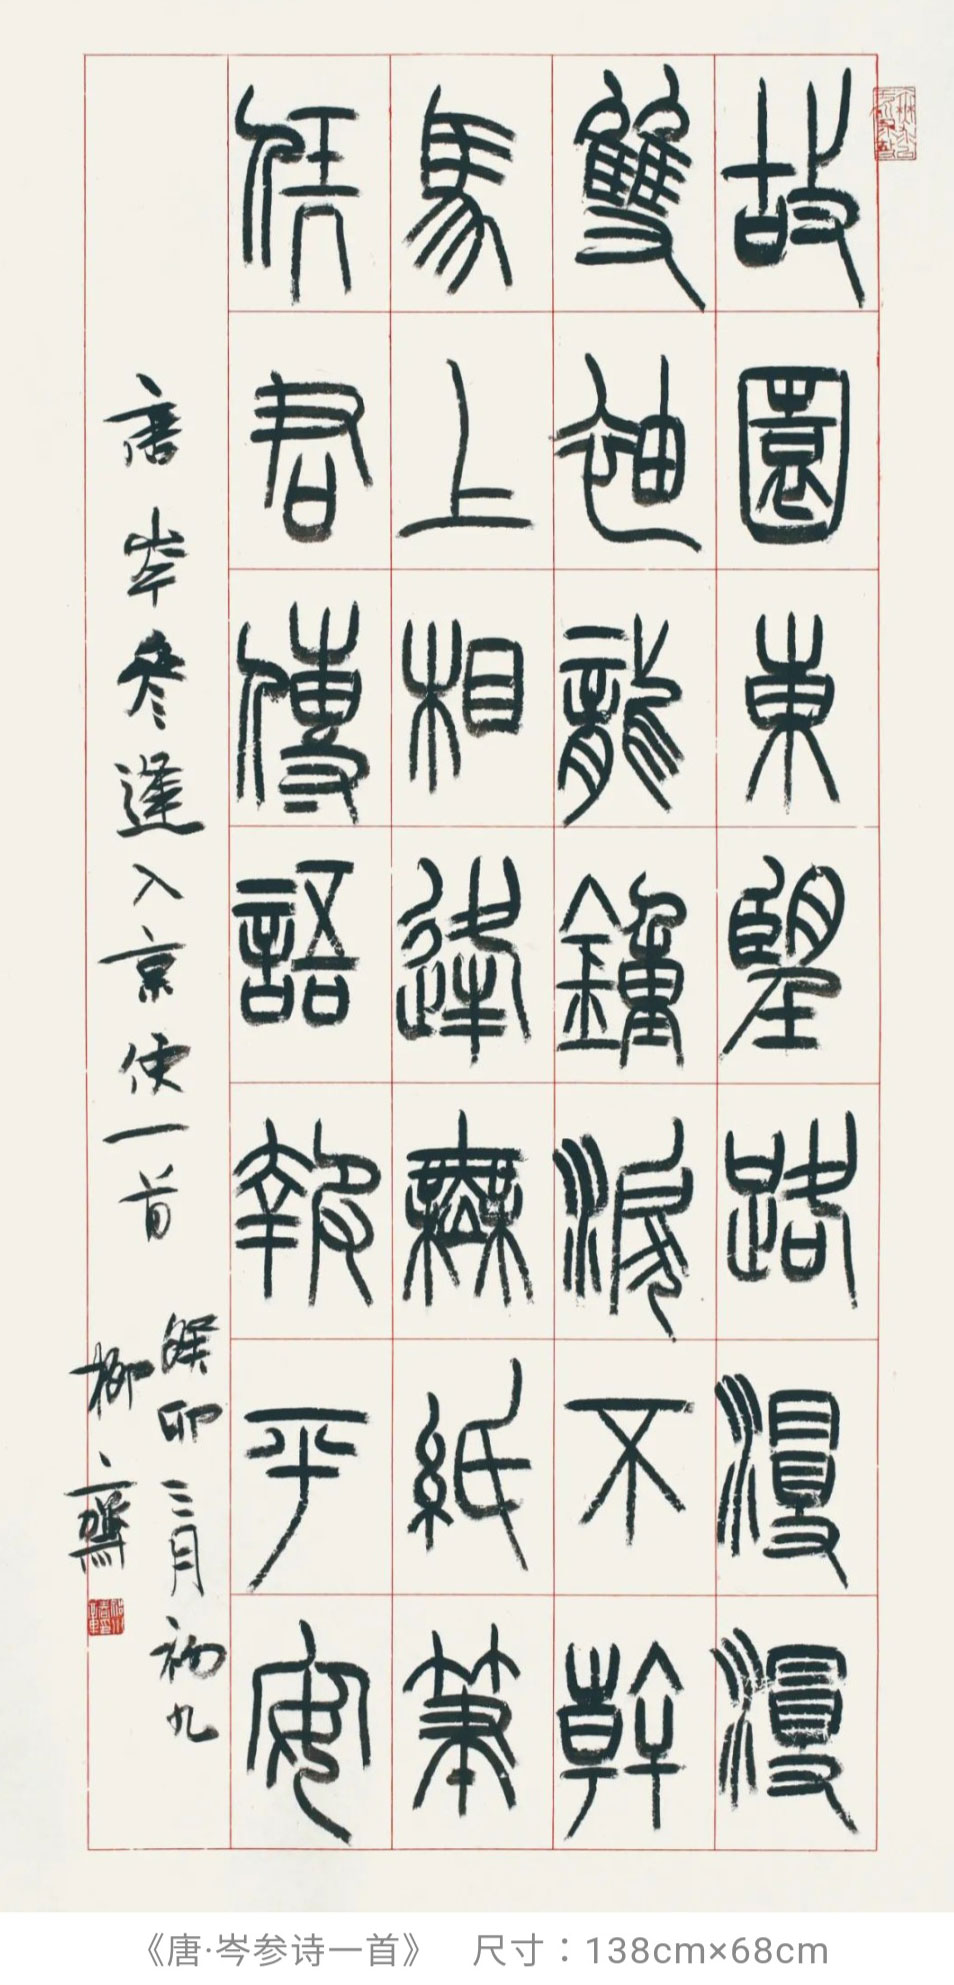 故園東望路漫漫
雙袖龍鐘淚不乾
馬上相逢無紙筆
憑君傳語報平安
唐岑參逢入京使一首
癸卯三月初九
柳齋
《唐·岑参诗一首》 尺寸：138cm×68cm